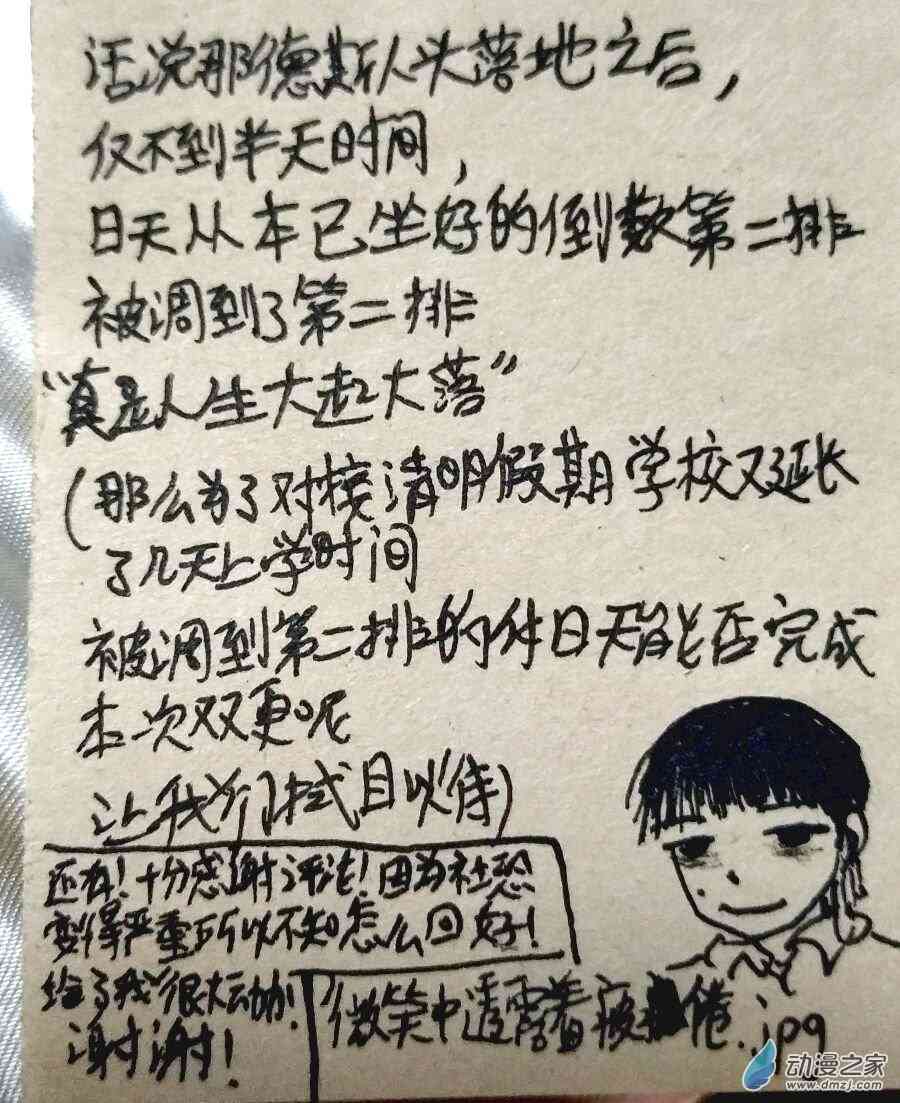 话说那德斯人头落地之后，
仅不到半天时间，
日天从本已坐好的倒数第二排
被调到了第二排
“真是人生大起大落”
（那么为了对接清明假期学校又延长
了几天上学时间
被调到第二排的仵日天能否完成
本次双更呢
让我们拭目以待）
还有！十分感谢评论！因为社恐
变得严重所以不知怎么回好！
给了我很大动力！
谢谢！
微笑中透露着疲倦.jpg
动漫之家
www.dmzj.com